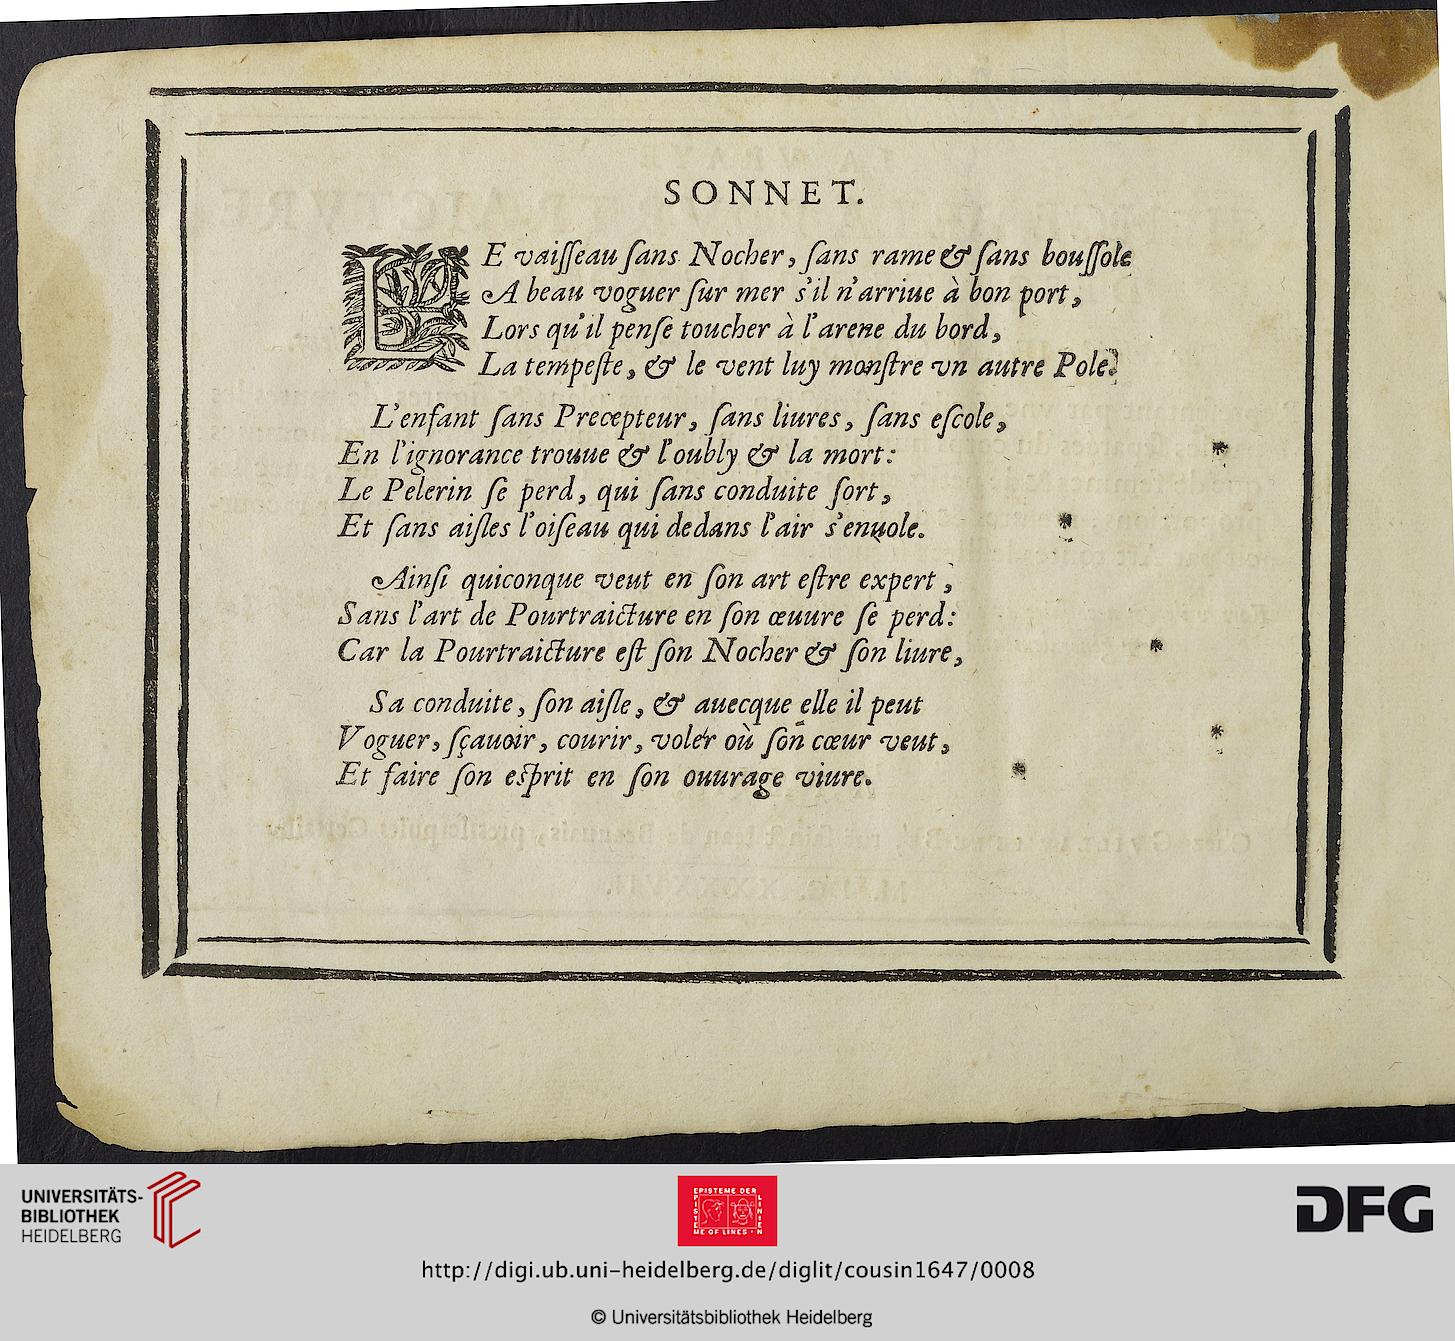 SONNET.
LE vaiſſeau ſans Nocher, ſans rame & ſans bouſſole
A beau voguer ſur mer s'il n'arriue à bon port,
Lors qu'il penſe toucher à l'arene du bord,
La tempeſte, & le vent luy monſtre vn autre Pole.
L'enfant ſans Precepteur, ſans liures, ſans eſcole,
En l'ignorance trouue & l'oubly & la mort:
Le Pelerin ſe perd, qui ſans conduite ſort,
Et ſans aiſles l'oiſeau qui dedans l'air s'enuole.
Ainſi quiconque veut en ſon art eſtre expert,
Sans l'art de Pourtraicture en ſon œuure ſe perd:
Car la Pourtraicture eſt ſon Nocher & ſon liure,
Sa conduite, ſon aiſle, & auecque elle il peut
Voguer, ſçauoir, courir, voler où ſon cœur veut,
Et faire ſon eſprit en ſon ouurage viure.
UNIVERSITÄTS-
BIBLIOTHEK
HEIDELBERG
EPISTEME DER
LINIEN
EPISTE
ME OF LINES
DFG
http://digi.ub.uni-heidelberg.de/diglit/cousin1647/0008
© Universitätsbibliothek Heidelberg